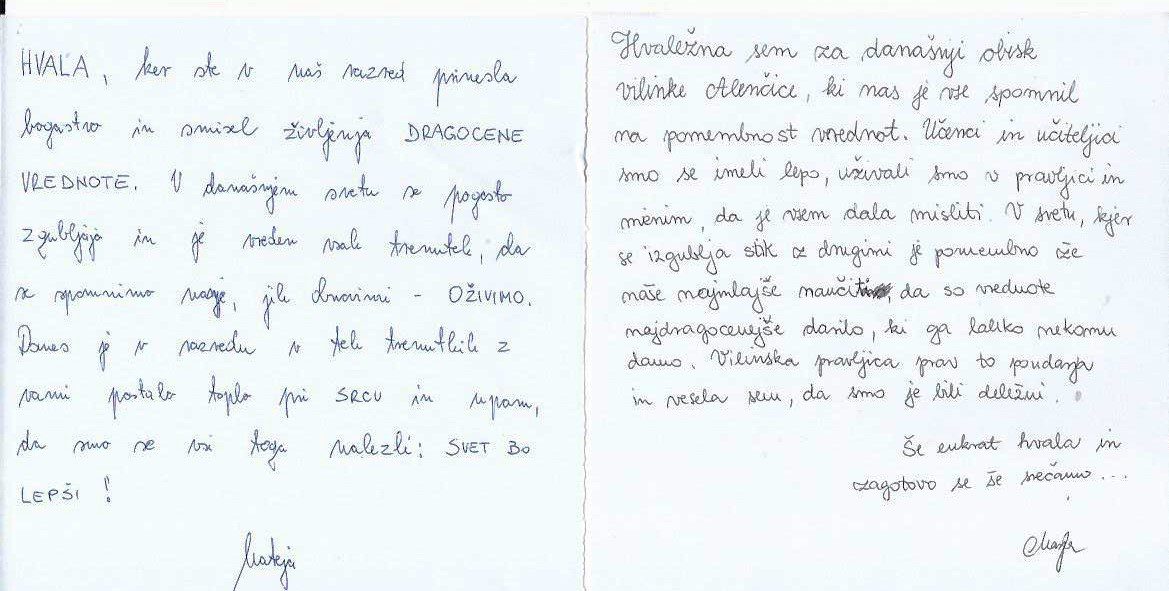 HVALA, ker ste v naš razred prinesla
bogastvo in smisel življenja DRAGOCENE
VREDNOTE. V današnjem svetu se pogosto
zgubljajo in je vreden vsak trenutek, da
se spomnimo nanje, jih obnovimo - OŽIVIMO.
Danes je v razredu v teh trenutkih z
vami postalo toplo pri SRCU in upam,
da smo se vsi tega nalezli: SVET BO
LEPŠI!
Mateja
Hvaležna sem za današnji obisk
vilinke Alenčice, ki nas je vse spomnil
na pomembnost vrednot. Učenci in učiteljici
smo se imeli lepo, uživali smo v pravljici in
menim, da je vsem dala misliti. V svetu, kjer
se izgublja stik z drugimi je pomembno že
naše najmlajše naučiti, da so vrednote
najdragocenejše darilo, ki ga lahko nekomu
damo. Vilinska pravljica prav to poudarja
in vesela sem, da smo je bili deležni.
Še enkrat hvala in
zagotovo se še srečamo...